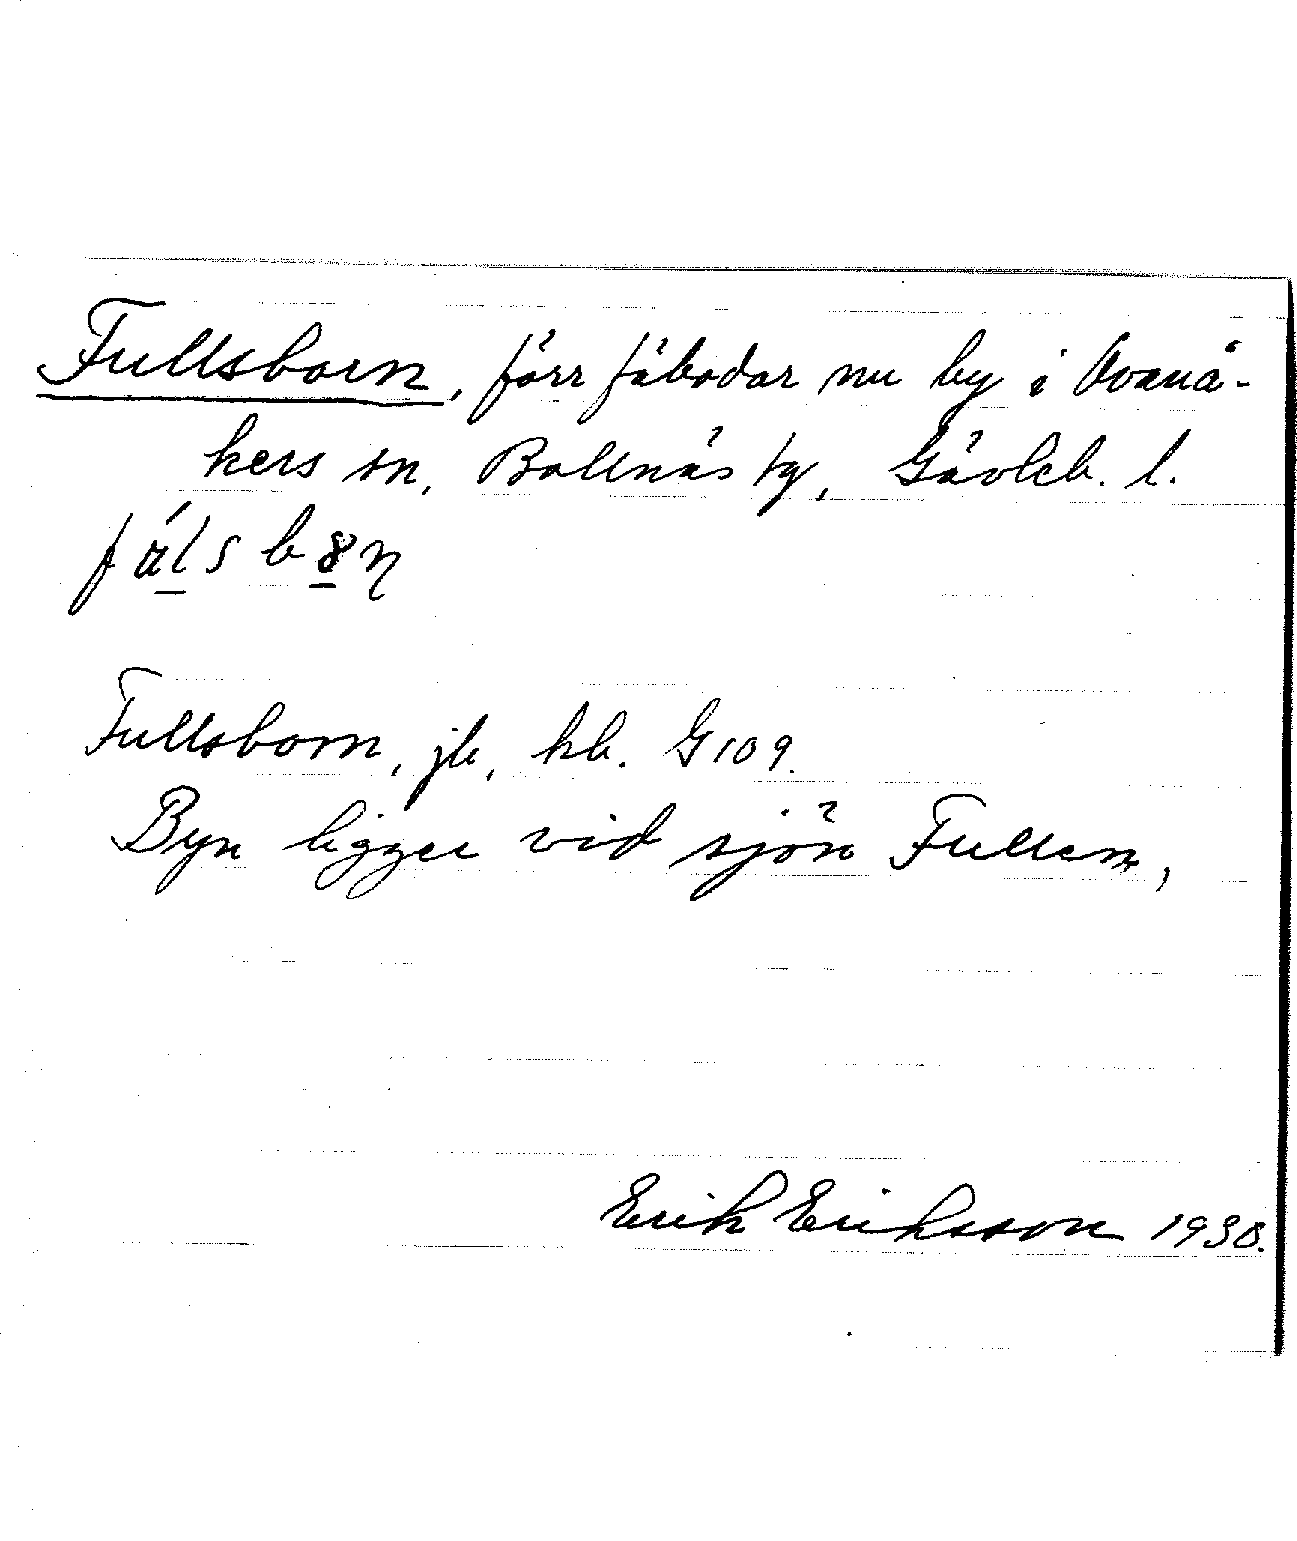 Fullsborn, förr fäbodar nu by i Ovanå-
kers sn, Bollnäs tg, Gävleb. l.
Fullsborn, jb, kb. G109.
Byn ligger vid sjön Fullen,
Erik Eriksson 1930.